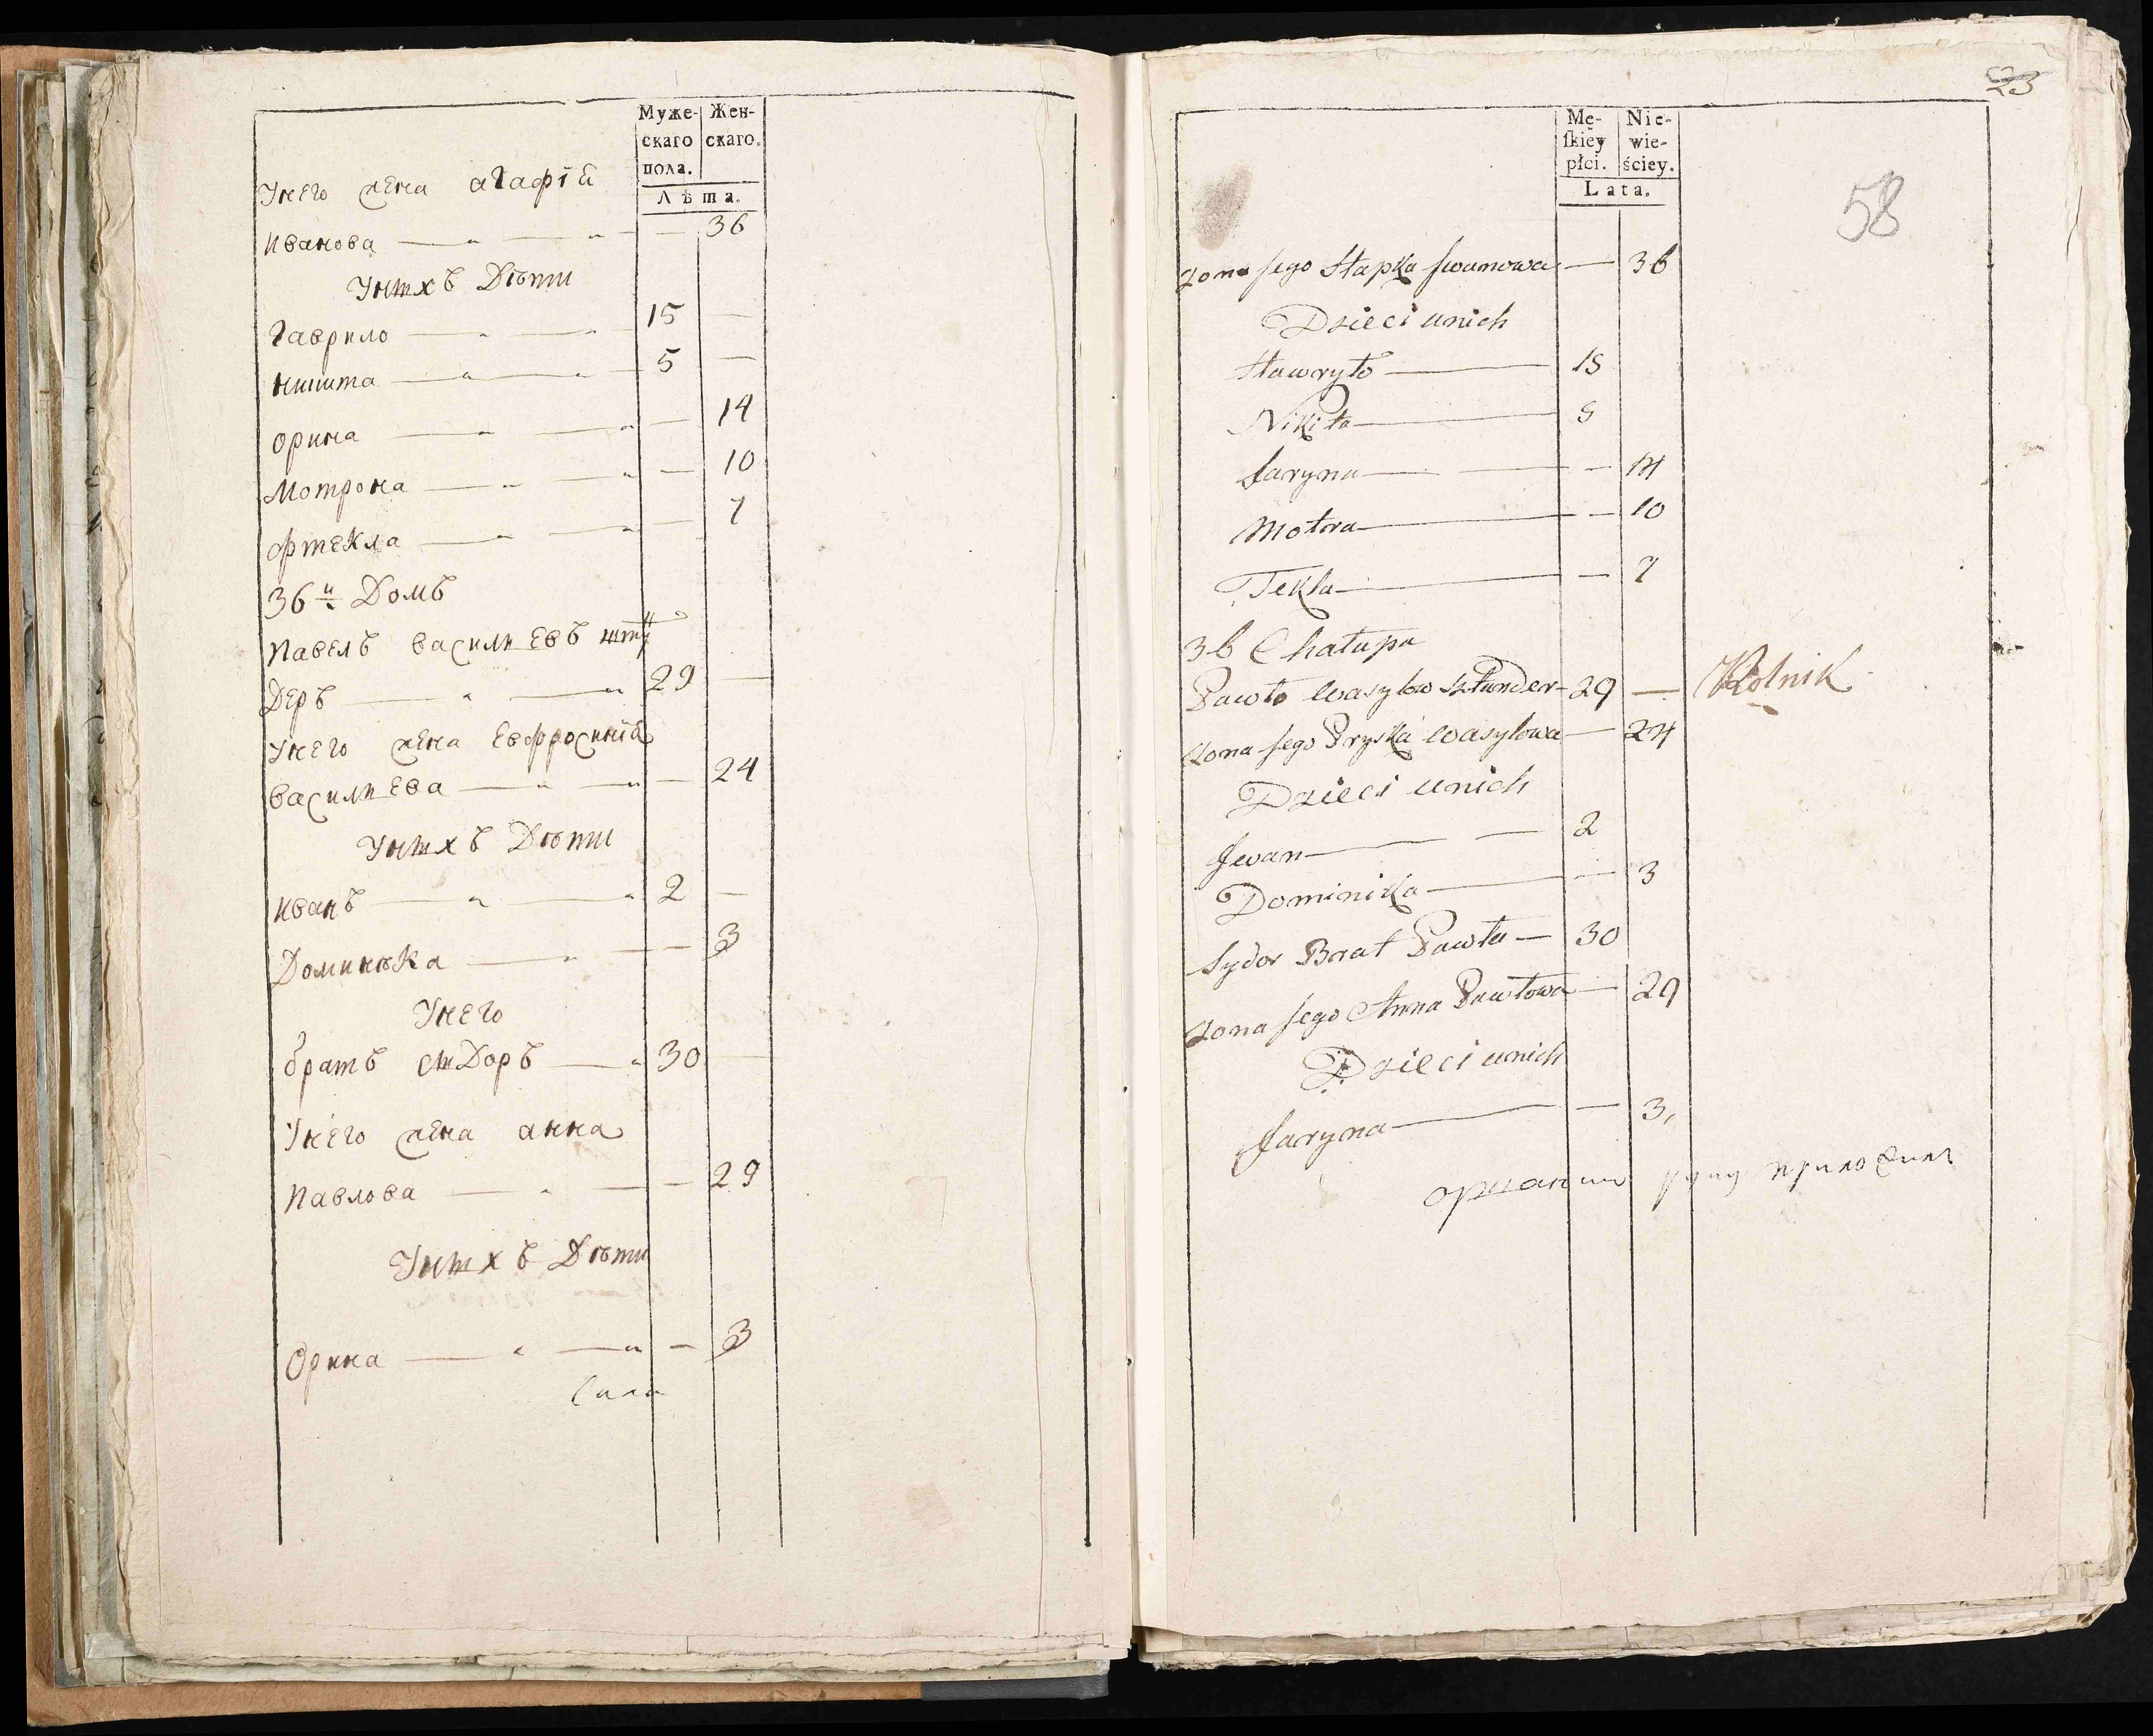 Муже- Жен-
скаго скаго.
пола.
Лѣта.
Унего жена агафїй
Иванова — — — 36
Унихъ Дѣти
Гаврило — — 15 —
Никита — — 5 —
орина — — — 14
Мотрона — — — 10
фтекла — — — 7
36й Домъ
Павелъ василиевъ шту
Деръ — — 29 —
Унего жена Евфросинїа
василиева — — — 24
Унихъ Дѣти
иванъ — — 2 —
Доминѣка — — — 3
Унего
братъ сидоръ — 30 —
Унего жена анна
Павлова — — — 29
Унихъ Дѣти
Орина — — — 3
23
Mę- Nie-
ſkiey wie-
płci. ściey.
Lata.
58
Zona Jego Hapka Jwanowa — 36
Dzieci unich
Hawryło — 15
Nikita — 5
Jaryna — — 14
Motra — — 10
Tekla — — 7
36 Chałupa
Pawło Wasylow Sztunder — 29 — Rolnik
Zona Jego Pryska Wasylowa — 24
Dzieci unich
Jwan — — 2
Dominika — — 3
Sydor Brat Pawła — 30
Zona Jego Anna Pawłowa — 29
Dzieci unich
Jaryna — — 3,
руку приложилъ